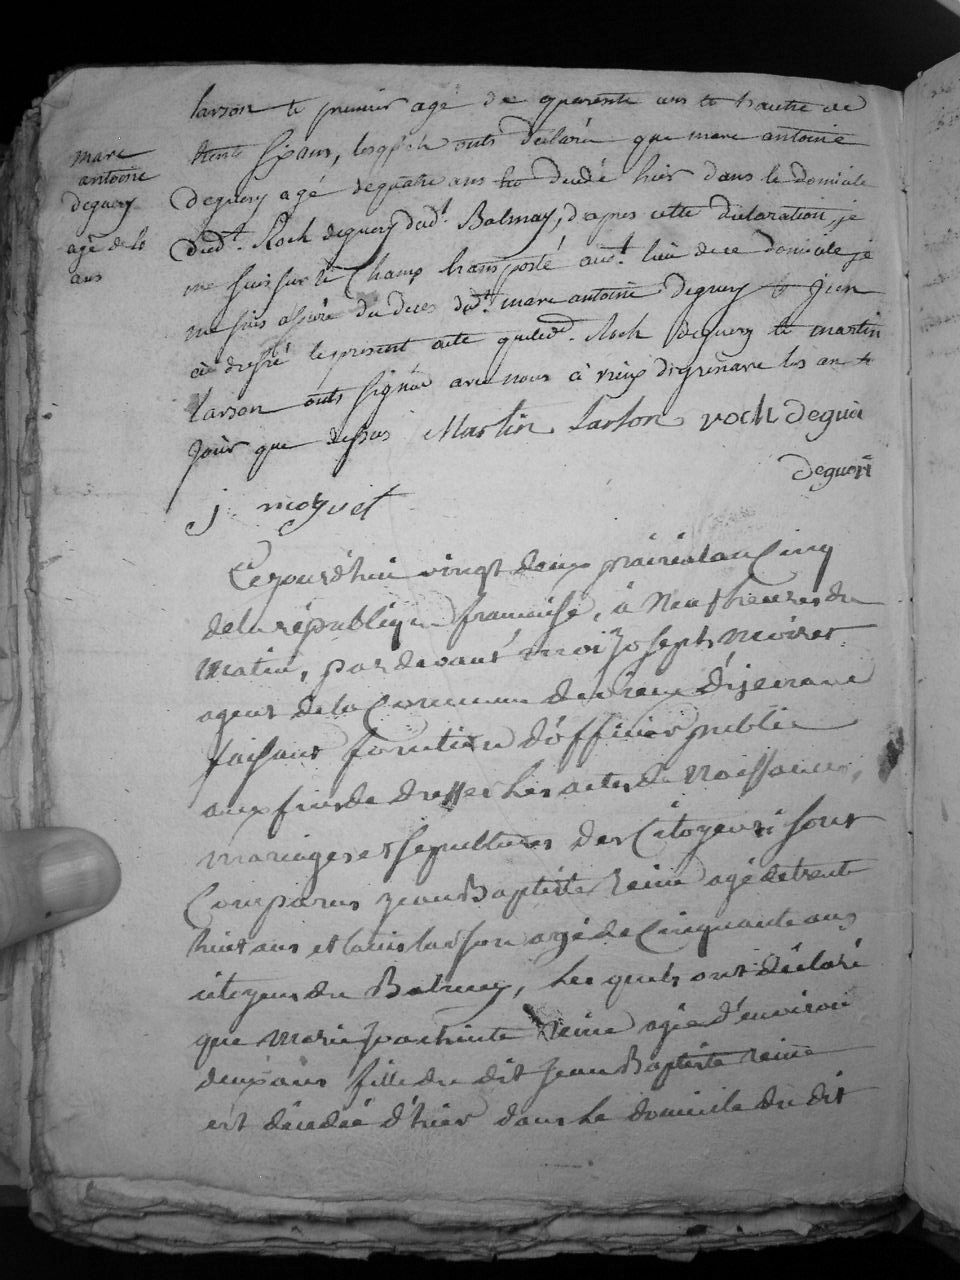 larson te premier agé de qparente ans te l'autre de
trente six ans, lesquels onts declarée que marc antoine
deguery agé de quatre ans decedé hier dans le domicile
dud.t Roch deguery dud.t Balnay, d'apres cette declaration, je
me suis sur le champ transporté aud.t lieu de ce domicile je
me suis assuré du deces dud.t marc antoine deguery et j'ien
ai dressé le present acte que led. Roch deguery te martin
larson onts signée avec nous à vieux digennave les an et
jour que dessus Martin larson roch deguer
deguerri
j. moguet
marc
antoine
deguery
agé de 4
ans
Cejourd'hui vingt deux prairial an Cinq
de la république francaise, à Neuf heures du
matin, par devant moi Joseph Moiret
agent de la Commune de vieux d'izenave
faisant fonction d'officier public
aux fins de dresser les actes de Naissances,
mariages et sepultures des Citoyens sont
Comparus jean Baptiste reine agé de trente
huit ans et louis larson agé de Cinquante ans
citoyens du Balmey, les quels ont déclaré
que marie joachinte reine agée d'environ
deux ans fille du dit jean Baptiste reine
est décédée d'hier dans le domicile du dit